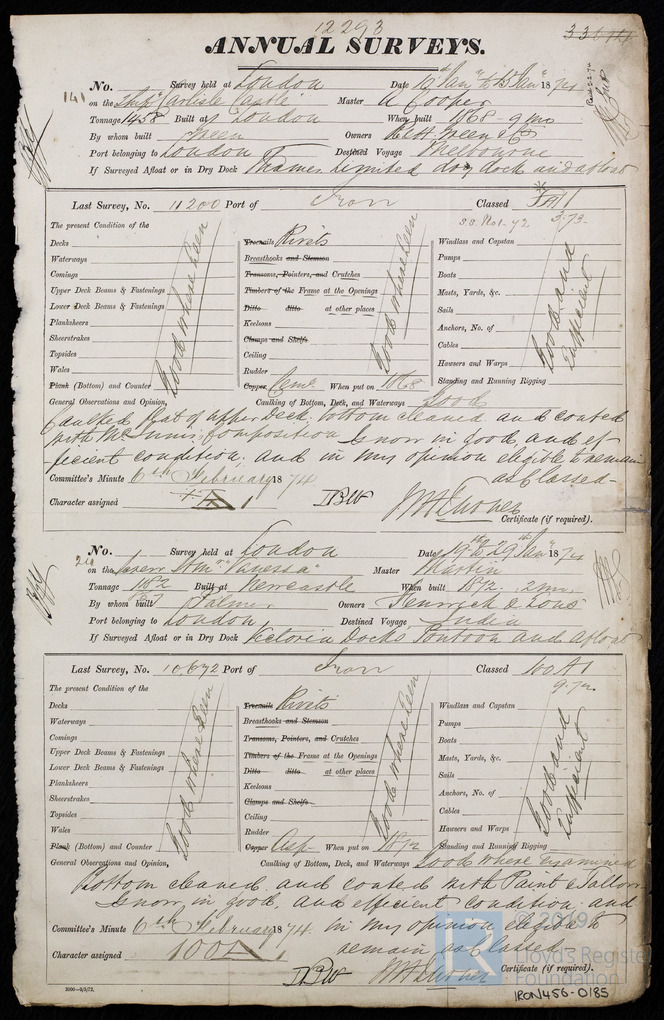 12293
33670
ANNUAL SURVEYS.
No. Survey held at London Date 12 Jan to 15 Jan 1874
141 on the Ship "Carlisle Castle" Master A Cooper
Tonnage 1458 Built at London When built 1868 9 mo
By whom built Green Owners R & H Green & Co
Port belonging to London Destined Voyage Melbourne
If Surveyed Afloat or in Dry Dock Thames Limited dry dock and afloat
Last Survey, No. 11200 Port of Iron Classed A1
S.S. No1-72 3.73
The present Condition of the
Decks
Waterways
Comings
Upper Deck Beams & Fastenings
Lower Deck Beams & Fastenings
Plankshears
Sheerstrakes
Topsides
Wales
Plank (Bottom) and Counter
Good where seen
Treenails Rivets
Breasthooks and Stemson
Transoms, Pointers, and Crutches
Timbers of the Frame at the Openings
Ditto ditto at other places
Keelsons
Clamps and Shelfs
Ceiling
Rudder
Copper Cemt When put on 1868
Good where seen
Windlass and Capstan
Pumps
Boats
Masts, Yards, &c.
Sails
Anchors, No. of
Cables
Hawsers and Warps
Standing and Running Rigging
Good and Sufficient
General Observations and Opinion, Caulking of Bottom, Deck, and Waterways Good
Caulked flat of upper Deck, bottom cleaned and coated
with McInnis composition Is now in good, and ef-
ficient condition; and in my opinion eligible to remain
as Classed-
Committee's Minute 6th February 1874
Character assigned A1
WH Turner
Certificate (if required).
No. Survey held at London Date 19th to 29 Jan 1874
24 on the Screw Stmr "Vanessa" Master Martin
Tonnage Built at Newcastle When built 1872. 2 mo.
By whom built Palmer Owners & Sons
Port belonging to London Destined Voyage India
If Surveyed Afloat or in Dry Dock Victoria Docks Pontoon and Afloat
Last Survey, No. 10,672 Port of Iron Classed 100A1
9.72
The present Condition of the
Decks
Waterways
Comings
Upper Deck Beams & Fastenings
Lower Deck Beams & Fastenings
Planksheers
Sheerstrakes
Topsides
Wales
Plank (Bottom) and Counter
Good where seen
Treenails Rivets
Breasthooks and Stemson
Transoms, Pointers, and Crutches
Timbers of the Frame at the Openings
Ditto ditto at other places
Keelsons
Clamps and Shelfs
Ceiling
Rudder
Copper Asp. When put on 1872
Good where seen
Windlass and Capstan
Pumps
Boats
Masts, Yards, &c.
Sails
Anchors, No. of
Cables
Hawsers and Warps
Standing and Running Rigging
Good and Sufficient
General Observations and Opinion, Caulking of Bottom, Deck, and Waterways Good where examined
Bottom cleaned and coated with Paint & Tallow
Is now in good, and efficient condition; and
Committee's Minute 6th February 1874. in my opinion eligible to
Character assigned 100A1 remain as Classed
WH Turner
Certificate (if required).
1000—9/5/72.
© 2019
Lloyd's Register
Foundation
IRON456-0185